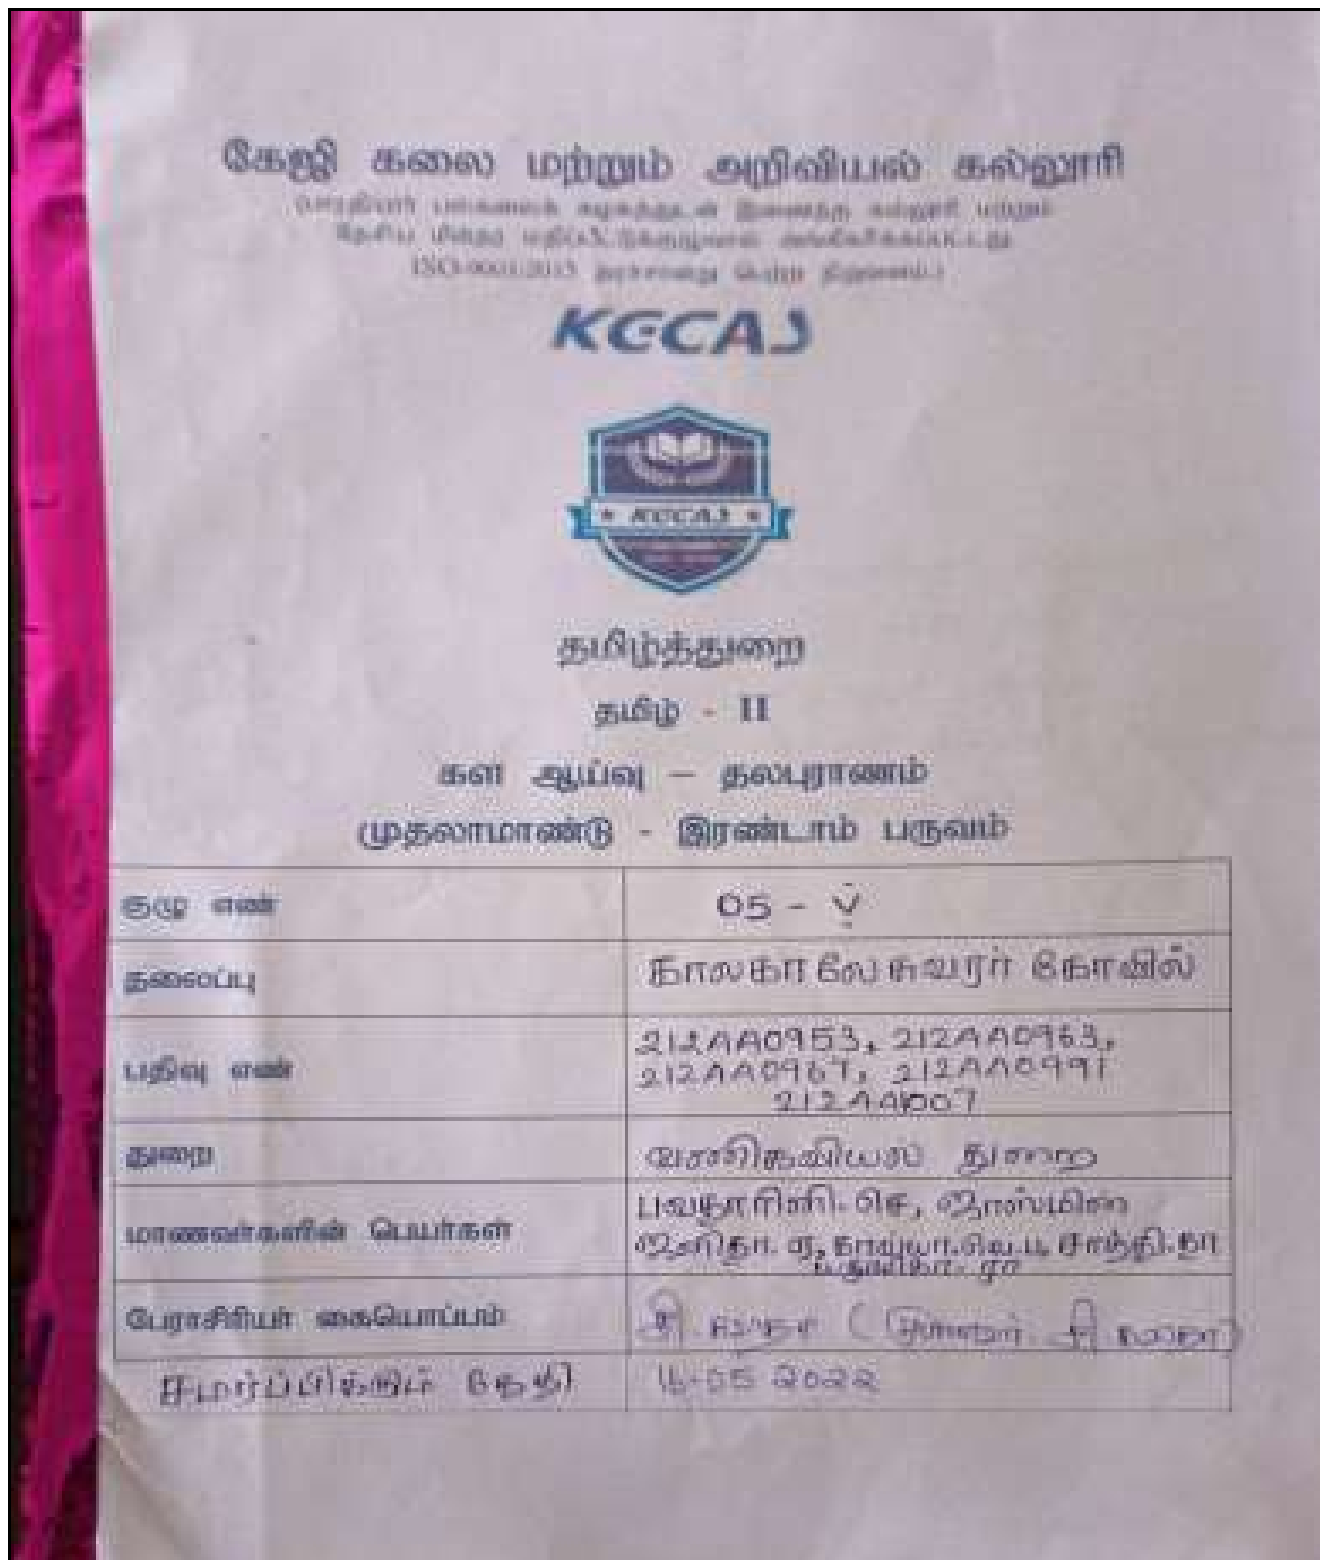 கேஜி கலை மற்றும் அறிவியல் கல்லூரி
(பாரதியார் பல்கலைக் கழகத்துடன் இணைந்த கல்லூரி மற்றும்
தேசிய
தரச்சான்று பெற்ற நிறுவனம்)
KGCAS
KGCAS
தமிழ்த்துறை
தமிழ் - II
கள ஆய்வு – தலபுராணம்
முதலாமாண்டு - இரண்டாம் பருவம்
குழு எண் 05 - V
தலைப்பு காலகாலேசுவரர் கோவில்
பதிவு எண் 212AA0953, 212AA0963,
212AA0967, 212AA0991
212AA1007
துறை வணிகவியல் துறை
மாணவர்களின் பெயர்கள் பவதாரிணி. செ, ஜாஸ்மின்
சாந்தி. நா
பேராசிரியர் கையொப்பம்
சமர்ப்பிக்கும் தேதி 16-05 2022